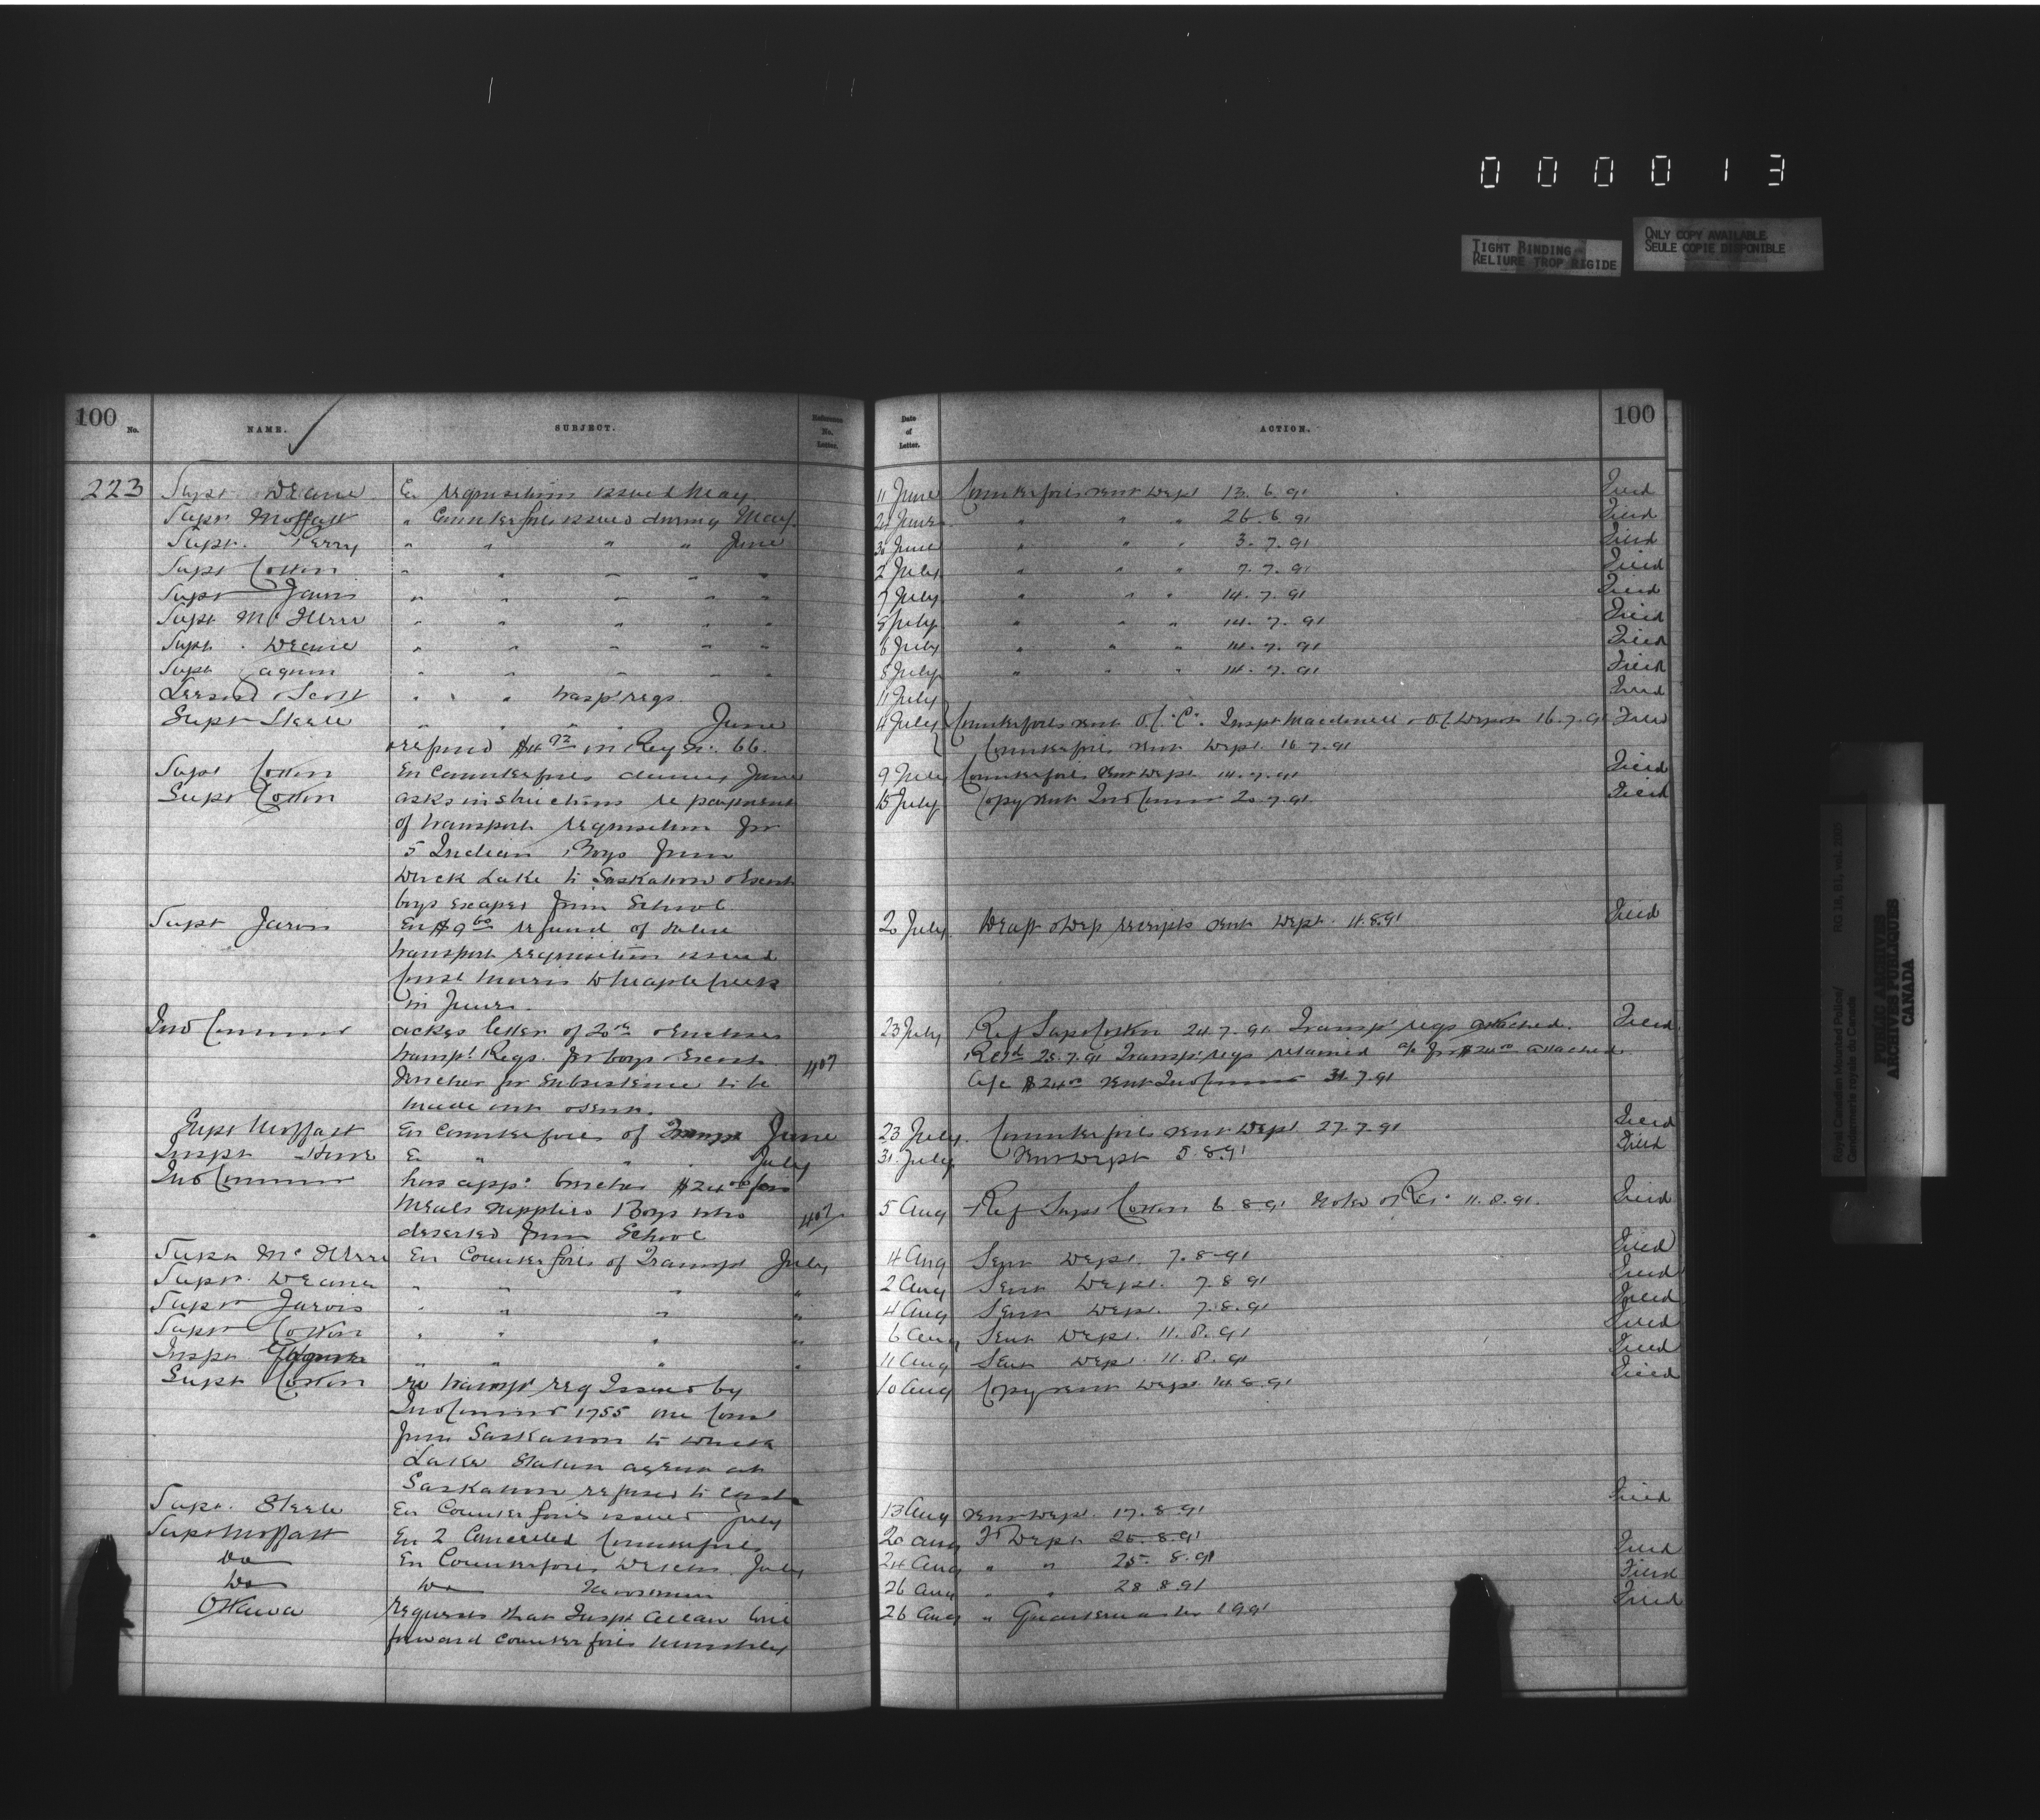 0 0 0 0 1 3
TIGHT BINDING
RELIURE TROP RIGIDE
ONLY COPY AVAILABLE
SEULE COPIE DISPONIBLE
100 No. NAME. SUBJECT. Reference No. Letter. Date of Letter. ACTION. 100
223 Supt Deane En requisitions issued May 11 June Counterfoils sent Dept 13.6.91 Filed
Supt Moffatt " Counterfoils issued during May 24 June " " " 26.6.91 Filed
Supt. Perry " " " " June 30 June " " " 3.7.91 Filed
Supt Cotton " " " " " 2 July " " " 7.7.91 Filed
Supt Jarvis " " " " " 7 July " " " 14.7.91 Filed
Supt McIllree " " " " " 5 July " " " 14.7.91 Filed
Supt. Deane " " " " " 6 July " " " 14.7.91 Filed
Supt Gagnon " " " " " 8 July " " " 14.7.91 Filed
Leeson & Scott " " " transpt reqs. 11 July Filed
Supt Steele " " " " June 4 July Counterfoils sent O.C. "C". Inspt Macdonell & O.C. Depot 16.7.91 Filed
refund in Reqn. 66. Counterfoils sent Dept. 16.7.91
Supt Cotton En Counterfoils during June 9 July Counterfoils sent Dept. 14.7.91 Filed
Supt Cotton asks instructions re payment 15 July Copy sent Ind Commr 20.7.91 Filed
of transport requisition for
5 Indian Boys from
Duck Lake to Saskatoon & escort
boys escaped from School
Supt Jarvis En $9 60 refund of value 20 July Draft & Dep receipts sent Dept. 11.8.91 Filed
transport requisition issued
Const Morris Maple Creek
in June.
Ind Commr ackgs letter of 20th & encloses 23 July Ref Supt Cotton 24.7.91 Transpt reqs attached. Filed
transpt. Reqs. for boys & escort 407 Retd 28.7.91 Transpt reqs retained a/c for $24 00 attached
Voucher for subsistence to be a/c $24 00 sent Ind Commr 31.7.91
made out & sent.
Supt Moffatt En Counterfoils of Transpt June 23 July. Counterfoils sent Dept 27.7.91 Filed
Inspt Howe En " " " July 31. July Sent Dept 5.8.91 Filed
Ind Commr has appd. voucher $24 00 for
meals supplied Boys who 407 5 Aug Ref Supt Cotton 6.8.91 Noted & Ret 11.8.91. Filed
deserted from School
Supt McIllree En Counterfoils of Transpt July 4 Aug Sent Dept. 7.8.91 Filed
Supt. Deane " " " " 2 Aug Sent Dept. 7.8.91 Filed
Supt Jarvis " " " " 4 Aug Sent Dept. 7.8.91 Filed
Supt Cotton " " " " 6 Aug Sent Dept. 11.8.91 Filed
Inspt. " " " " 11 Aug Sent Dept. 11.8.91 Filed
Supt Cotton re transpt req issued by 10 Aug Copy sent Dept 14.8.91 Filed
Ind Commr 1755 one Const
from Saskatoon to Duck
Lake Station agent at
Saskatoon refused to
Supt. Steele En Counterfoils issued July 13 Aug Sent Dept. 17.8.91 Filed
Supt Moffatt En 2 Cancelled Counterfoils 20 Aug Dept 25.8.91
Do En Counterfoils July 24 Aug " " 25.8.91 Filed
Do Do Moosomin 26 Aug " " 28.8.91 Filed
Ottawa requests that Inspt Allan will 26 Aug " Quartermaster 1.9.91 Filed
forward counterfoils monthly
Royal Canadian Mounted Police/
Gendarmerie royale du Canada
RG 18, B1, vol.
PUBLIC ARCHIVES
ARCHIVES PUBLIQUES
CANADA